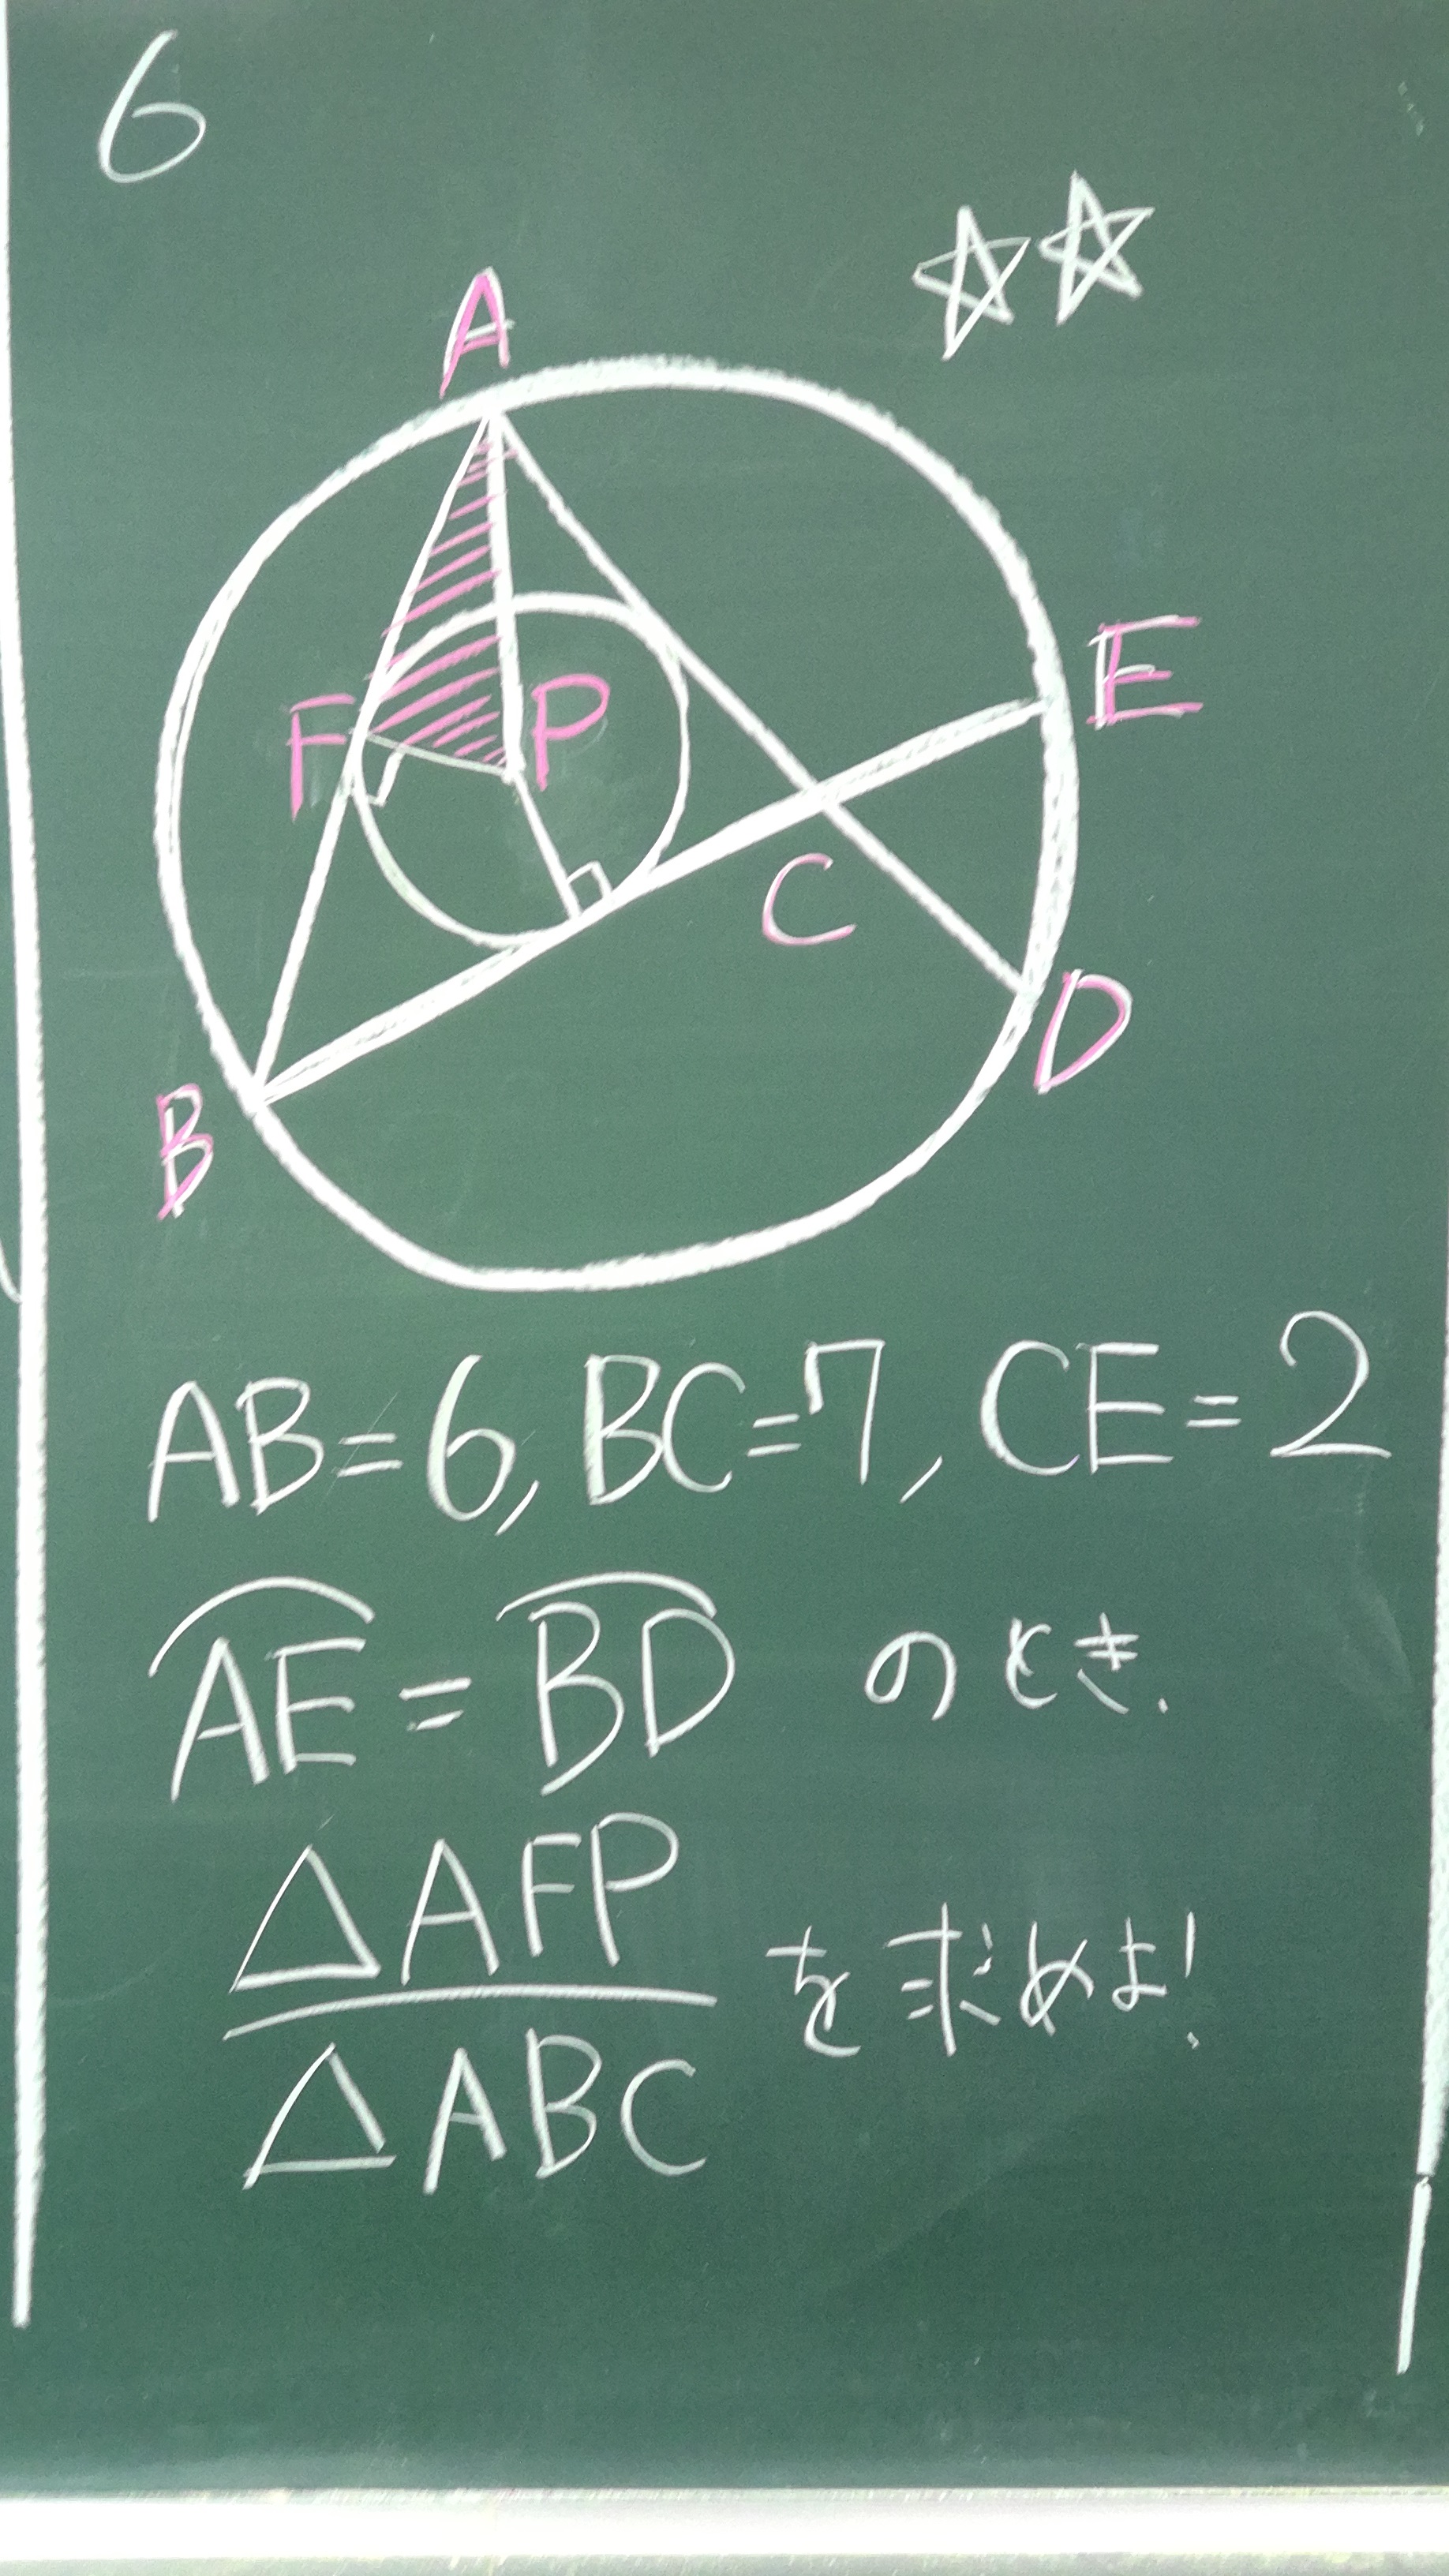 6
A
E
F
P
C
D
B
AB=6, BC=7, CE=2
AE = BD のとき.
△AFP
を求めよ!
△ABC